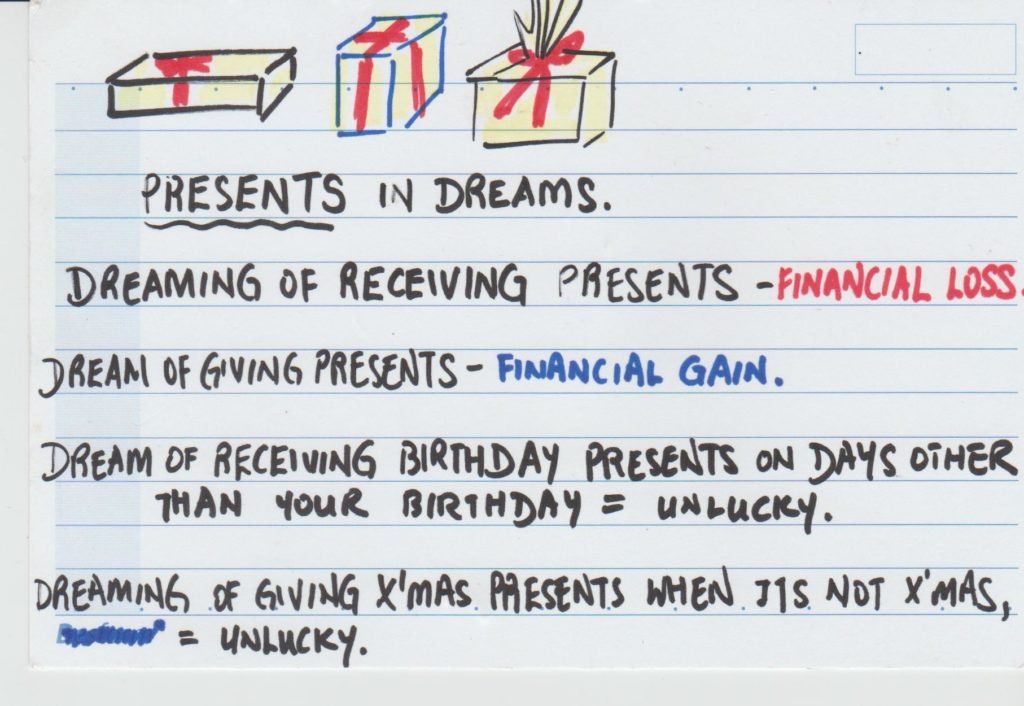 PRESENTS IN DREAMS.
DREAMING OF RECEIVING PRESENTS - FINANCIAL LOSS.
DREAM OF GIVING PRESENTS - FINANCIAL GAIN.
DREAM OF RECEIVING BIRTHDAY PRESENTS ON DAYS OTHER
THAN YOUR BIRTHDAY = UNLUCKY.
DREAMING OF GIVING X'MAS PRESENTS WHEN ITS NOT X'MAS,
= UNLUCKY.